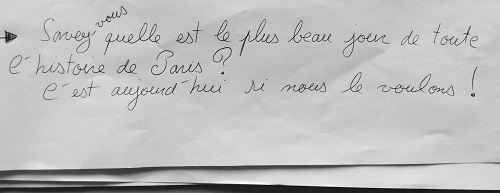 Savez-vous quelle est le plus beau jour de toute
l'histoire de Paris ?
C'est aujourd'hui si nous le voulons !